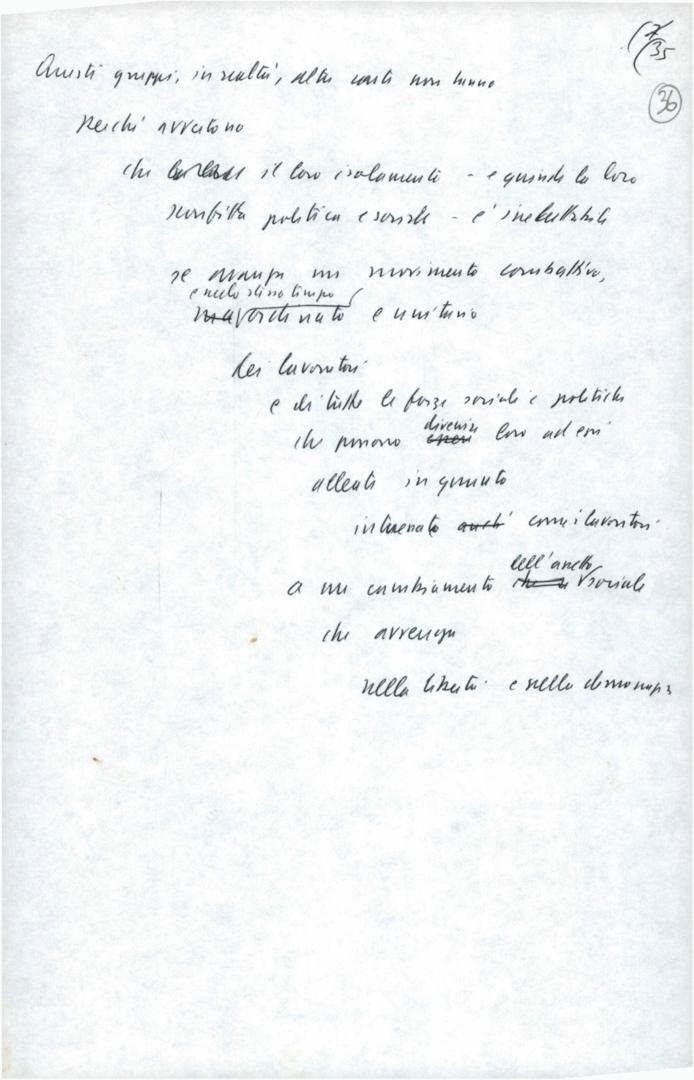 35
36
Questi gruppi, in realtà, altre carte non hanno
Perché avvertono
che il loro isolamento - e quindi la loro
sconfitta politica e sociale - è ineluttabile
se avanza un movimento combattivo,
e nello stesso tempo
ma ordinato e unitario
dei lavoratori
e di tutte le forze sociali e politiche
che possono divenire loro ad essi
alleate in quanto
interessate anche come i lavoratori
a un cambiamento dell'assetto sociale
che avvenga
nella libertà e nella democrazia